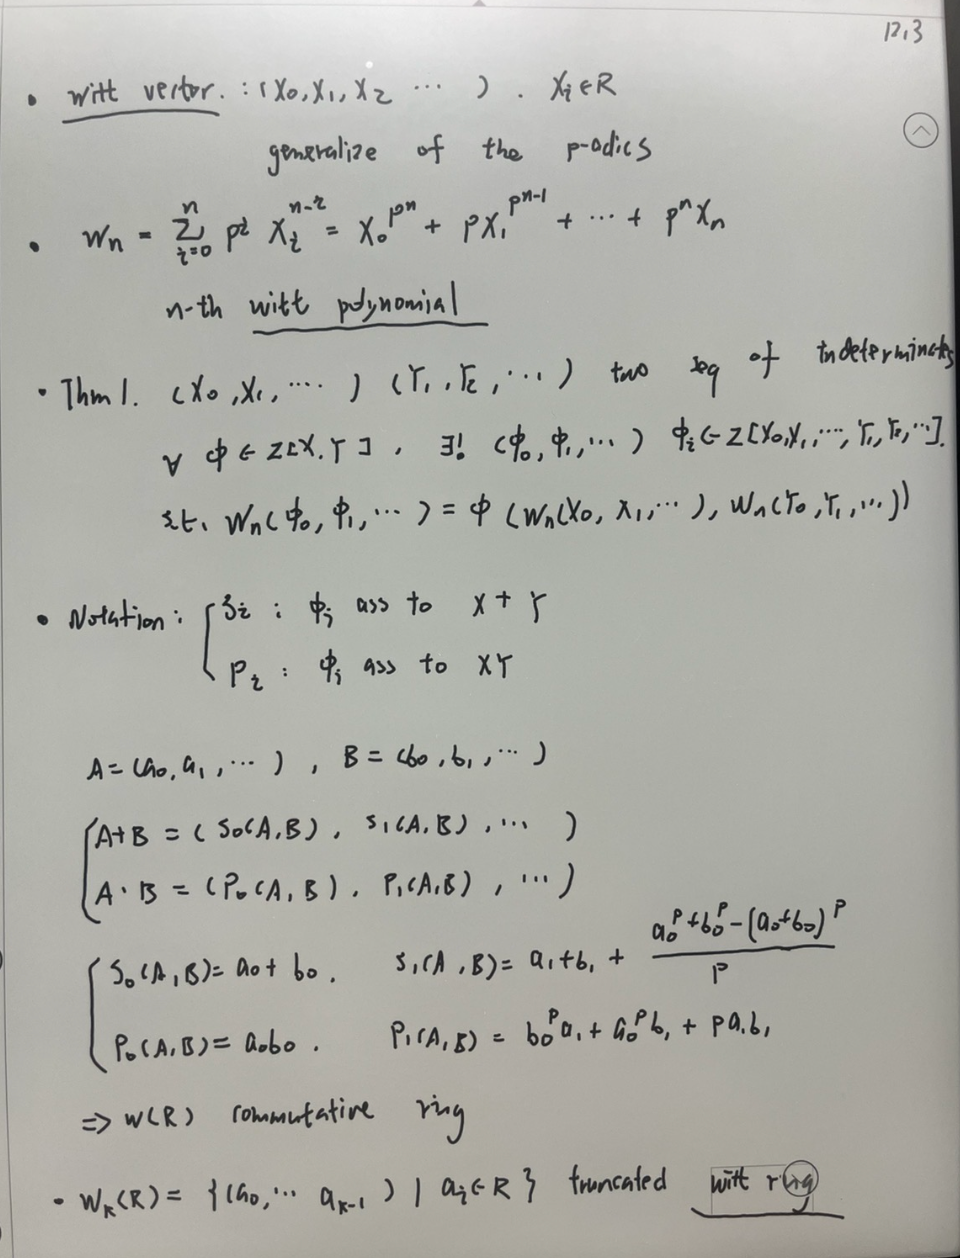 12.3
• Witt vector. : (X₀, X₁, X₂ ⋯ ) . Xᵢ ∈ R
generalize of the p-adics
• Wₙ = ∑_{i=0}^{n} pⁱ Xᵢ^{n-i} = X₀^{pⁿ} + pX₁^{pⁿ⁻¹} + ⋯ + pⁿXₙ
n-th witt polynomial
• Thm 1. (X₀, X₁, ⋯ ) (Y₁, Y₂, ⋯ ) two seq of indeterminates
∀ ϕ ∈ Z[X, Y], ∃! (ϕ₀, ϕ₁, ⋯ ) ϕᵢ ∈ Z[X₀, X₁, ⋯, Y₁, Y₂, ⋯].
s.t. Wₙ(ϕ₀, ϕ₁, ⋯ ) = ϕ (Wₙ(X₀, X₁, ⋯ ), Wₙ(Y₀, Y₁, ⋯ ))
• Notation : { Sᵢ : ϕᵢ ass to X + Y
Pᵢ : ϕᵢ ass to XY
A = (a₀, a₁, ⋯ ) , B = (b₀, b₁, ⋯ )
{ A+B = ( S₀(A,B) , S₁(A,B) , ⋯ )
A · B = (P₀(A,B) . P₁(A,B) , ⋯ )
{ S₀(A,B) = a₀ + b₀ . S₁(A,B) = a₁+b₁ + (a₀^p + b₀^p - (a₀+b₀)^p) / p
P₀(A,B) = a₀b₀ . P₁(A,B) = b₀^p a₁ + a₀^p b₁ + p a₁ b₁
⇒ W(R) commutative ring
• Wₖ(R) = {(a₀, ⋯ aₖ₋₁ ) | aᵢ ∈ R } truncated witt ring